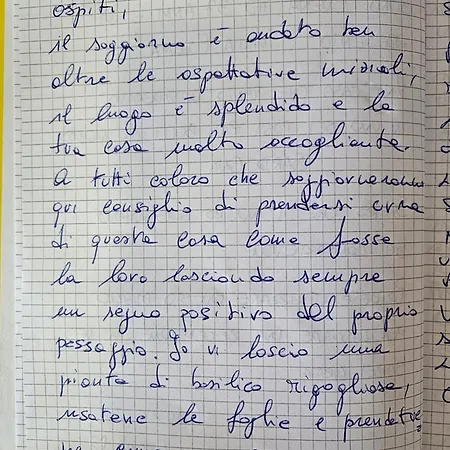 ospiti,
il soggiorno è andato ben
oltre le aspettative iniziali,
il luogo è splendido e la
tua casa molto accogliente.
A tutti coloro che soggiorneranno
qui consiglio di prendersi cura
di questa casa come fosse
la loro lasciando sempre
un segno positivo del proprio
passaggio. Io vi lascio una
pianta di basilico rigogliosa,
usatene le foglie e prendetve